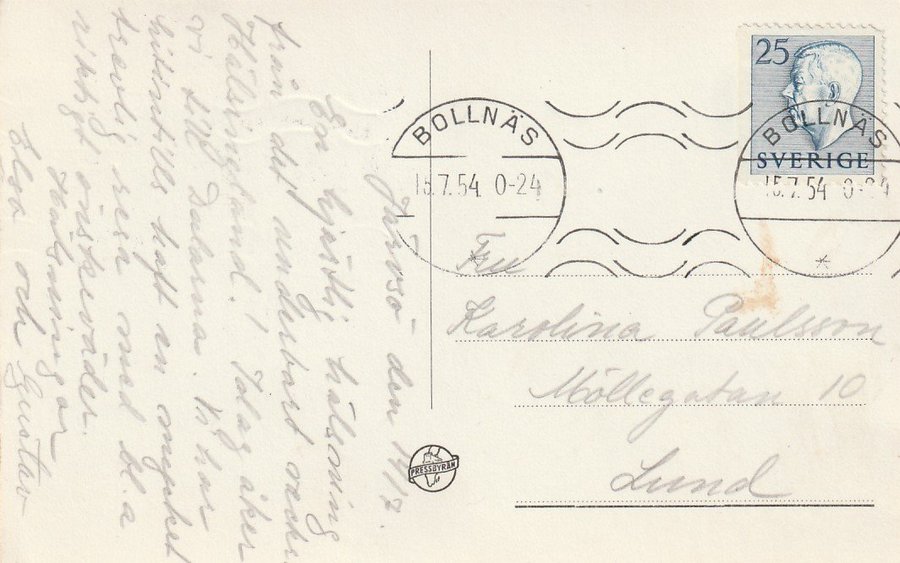 Järvsö den 14/7.
En hjärtlig hälsning
från det underbart vackra
Hälsingland! Idag åker
vi till Dalarna. Vi har
hittills haft en mycket
trevlig resa med bl. a
riktigt önskeväder.
Hälsningar
Elva och Gustav
BOLLNÄS
15.7.54 0-24
25
SVERIGE
BOLLNÄS
15.7.54 0-24
Fru
Karolina Paulsson
Möllegatan 10
Lund
PRESSBYRÅN